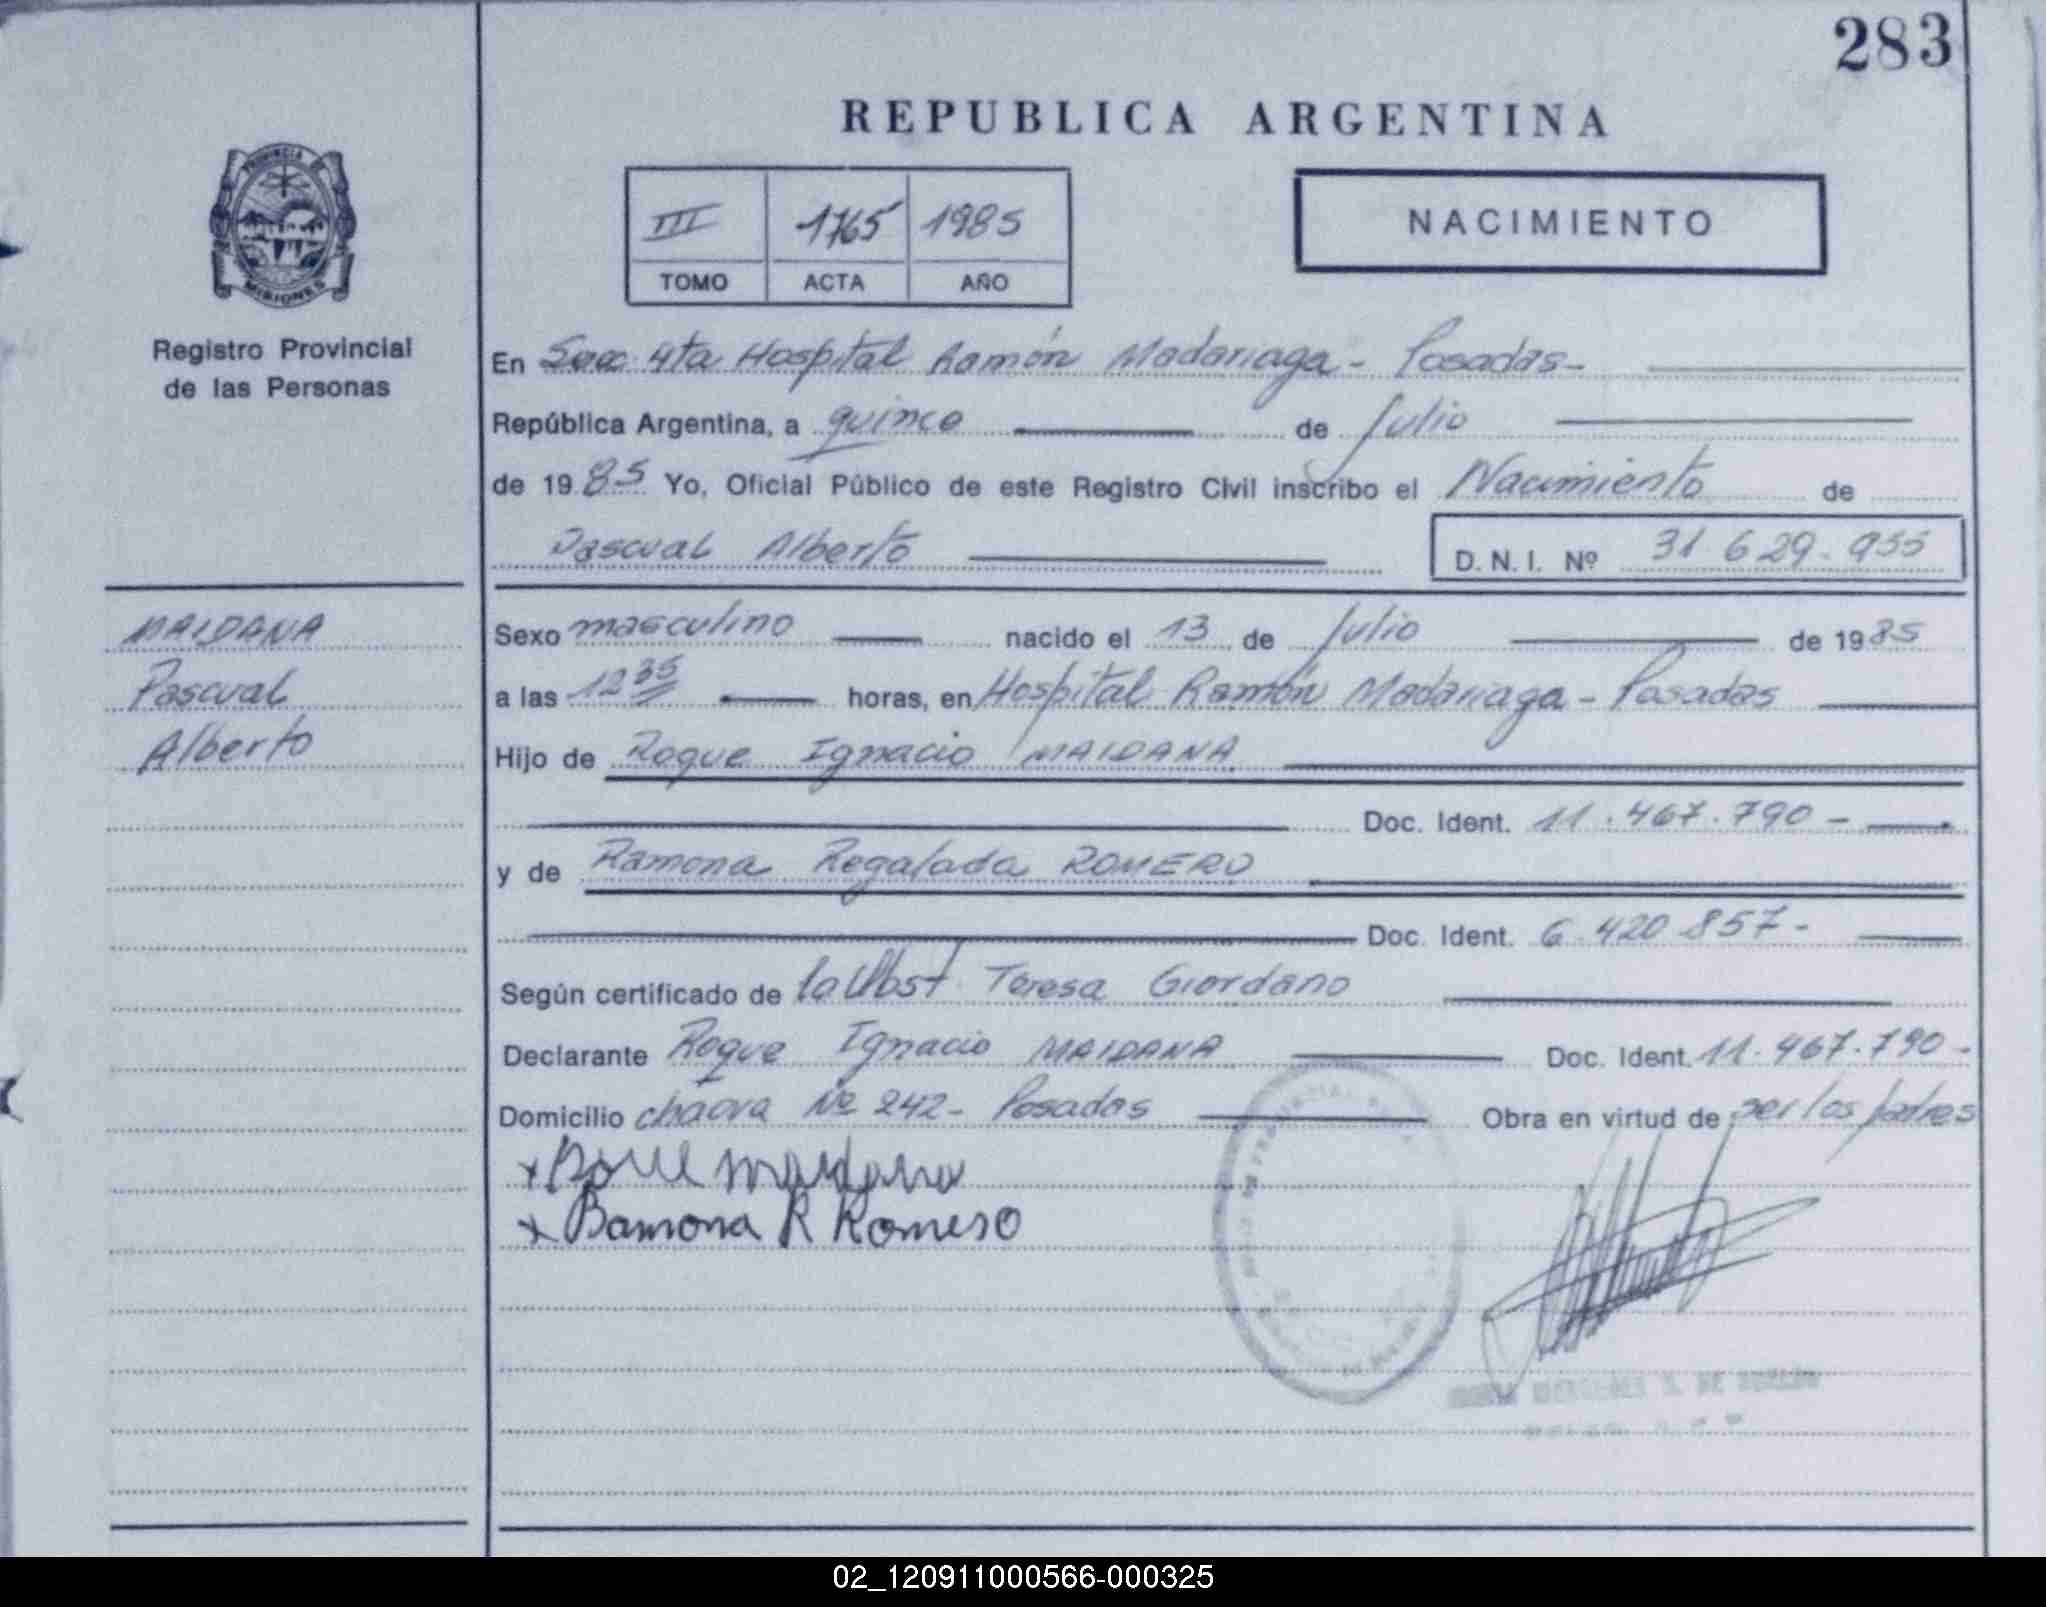 283
REPUBLICA ARGENTINA
PROVINCIA DE
MISIONES
Registro Provincial
de las Personas
III 1765 1985
TOMO ACTA AÑO
NACIMIENTO
En Secc 4ta Hospital Ramón Madariaga - Posadas -
República Argentina, a quince de Julio
de 1985 Yo, Oficial Público de este Registro Civil inscribo el Nacimiento de
Pascual Alberto D.N.I. Nº 31.629.955
MAIDANA
Pascual
Alberto
Sexo masculino nacido el 13 de Julio de 1985
a las 12 35 horas, en Hospital Ramón Madariaga - Posadas
Hijo de Roque Ignacio MAIDANA
Doc. Ident. 11.467.790 -
y de Ramona Regalada ROMERO
Doc. Ident. 6.420.857 -
Según certificado de la Obst Teresa Giordano
Declarante Roque Ignacio MAIDANA Doc. Ident. 11.467.790 -
Domicilio Nº 242 - Posadas Obra en virtud de ser los padres
x maidana
x Ramona R Romero
02_120911000566-000325